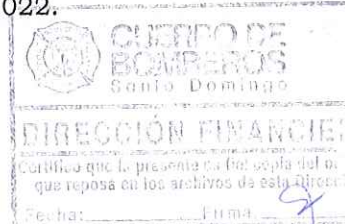 022.
CUERPO DE
BOMBEROS
Santo Domingo
DIRECCIÓN FINANCIE
Certifico que la presente es fiel copia del o
que reposa en los archivos de esta Direcci
Fecha: Firma